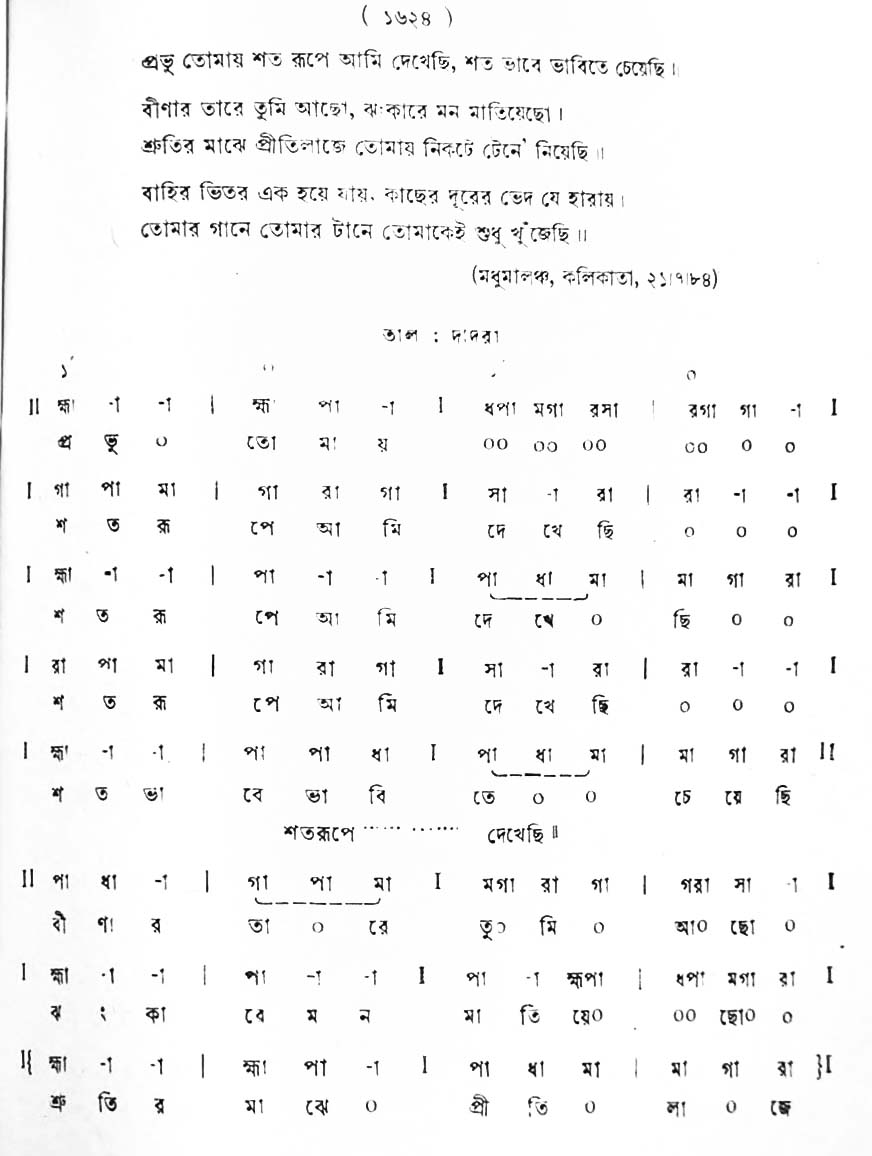 ( ১৬২৪ )
প্রভু তোমায় শত রূপে আমি দেখেছি, শত ভাবে ভাবিতে চেয়েছি।
বীণার তারে তুমি আছো, ঝংকারে মন মাতিয়েছো।
শ্রুতির মাঝে প্রীতিলাজে তোমায় নিকটে টেনে' নিয়েছি॥
বাহির ভিতর এক হয়ে যায়, কাছের দূরের ভেদ যে হারায়।
তোমার গানে তোমার টানে তোমাকেই শুধু খুঁজেছি॥
(মধুমালঞ্চ, কলিকাতা, ২১।৭।৮৪)
তাল : দাদরা
১´ ০ ০
II হ্মা -া -া | হ্মা পা -া I ধপা মগা রসা | রগা গা -া I
প্র ভু ০ তো মা য় ০০ ০০ ০০ ০০ ০ ০
I গা পা মা | গা রা গা I সা -া রা | রা -া -া I
শ ত রূ পে আ মি দে খে ছি ০ ০ ০
I হ্মা -া -া | পা -া -া I পা ধা মা | মা গা রা I
শ ত রূ পে আ মি দে খে ০ ছি ০ ০
I রা পা মা | গা রা গা I সা -া রা | রা -া -া I
শ ত রূ পে আ মি দে খে ছি ০ ০ ০
I হ্মা -া -া | পা পা ধা I পা ধা মা | মা গা রা II
শ ত ভা বে ভা বি তে ০ ০ চে য়ে ছি
শতরূপে ············ দেখেছি॥
II পা ধা -া | গা পা মা I মগা রা গা | গরা সা -া I
বী ণা র তা ০ রে তু০ মি ০ আ০ ছো ০
I হ্মা -া -া | পা -া -া I পা -া হ্মপা | ধপা মগা রা I
ঝ ং কা রে ম ন মা তি য়ে০ ০০ ছো০ ০
I{ হ্মা -া -া | হ্মা পা -া I পা ধা মা | মা গা রা }I
শ্রু তি র মা ঝে ০ প্রী তি ০ লা ০ জে